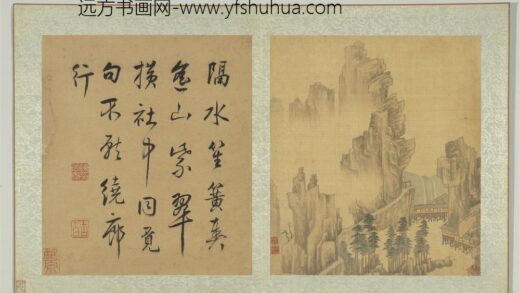 远方书画网- www.yfshuhua.com
隔水笙簧奏
山紫翠
横社中同覓
句不繞廊
行